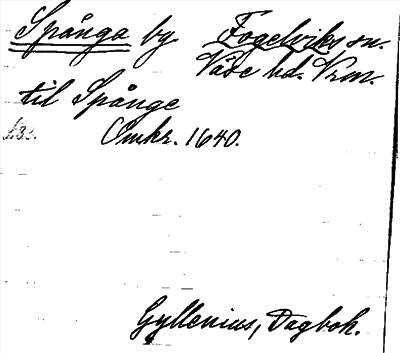 Spånga by Fogelviks sn.
Väse hd. Vrm.
til Spånge
s. 33. Omkr. 1640.
Gyllenius, Dagbok.